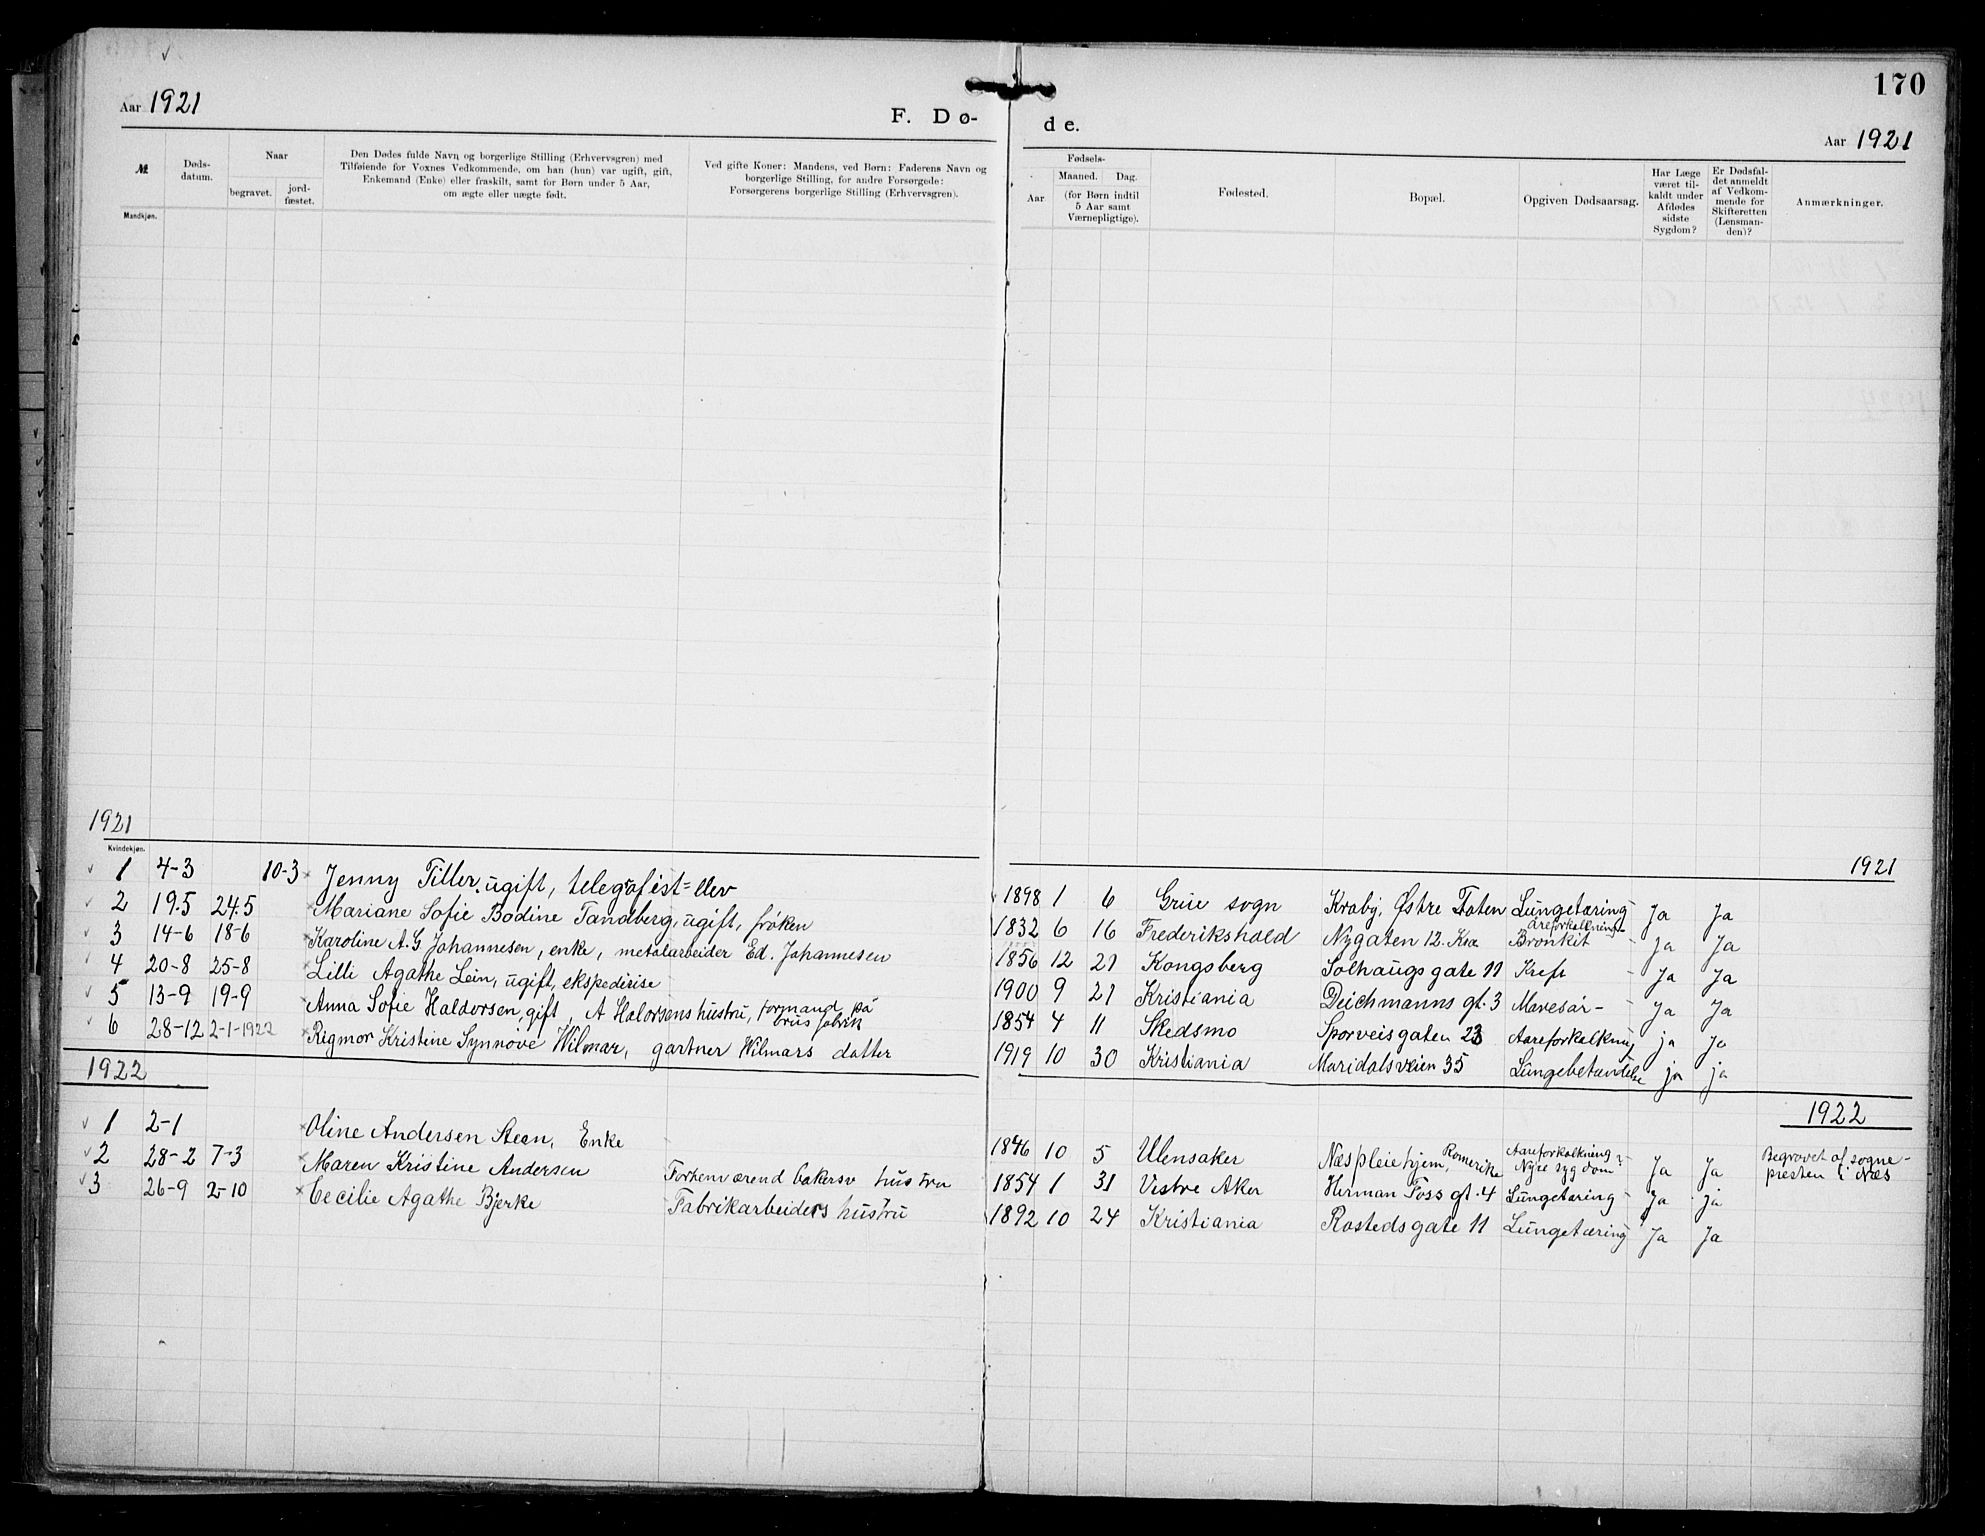 170
Aar 1921
F. Dø- de.
Aar 1921
№
Døds-
datum.
Naar
begravet.
jord-
fæstet.
Den Dødes fulde Navn og borgerlige Stilling (Erhvervsgren) med
Tilføiende for Voxnes Vedkommende, om han (hun) var ugift, gift,
Enkemand (Enke) eller fraskilt, samt for Børn under 5 Aar,
om ægte eller uægte født.
Ved gifte Koner: Mandens, ved Børn: Faderens Navn og
borgerlige Stilling, for andre Forsørgede:
Forsørgerens borgerlige Stilling (Erhvervsgren).
Fødsels-
Aar
Maaned. Dag.
(for Børn indtil
5 Aar samt
Værnepligtige).
Fødested.
Bopæl.
Opgiven Dødsaarsag.
Har Læge
været til-
kaldt under
Afdødes
sidste
Sygdom?
Er Dødsfal-
det anmeldt
af Vedkom-
mende for
Skifteretten
(Lensman-
den)?
Anmærkninger.
Mandkjøn.
1921
Kvindekjøn.
1921
1 4-3 10-3 Jenny Tiller, ugift, telegrafist=elev 1898 1 6 Grue sogn Kraby, Østre Toten Lungetæring Ja Ja
2 19.5 24.5 Mariane Sofie Bodine Tandberg, ugift, frøken 1832 6 16 Frederikshald Nygaten 12. Kra Åreforkalkning- Bronkit Ja Ja
3 14-6 18-6 Karoline A.G Johannesen, enke, metalarbeider Ed. Johannesen 1856 12 21 Kongsberg Solhaugs gate 11 Kreft Ja Ja
4 20-8 25-8 Lilli Agathe Lein, ugift, ekspederise 1900 9 21 Kristiania Deichmanns gt. 3 Mavesår- Ja Ja
5 13-9 19-9 Anna Sofie Haldorsen, gift, A Halorsens hustru, formand på brusfabrik 1854 4 11 Skedsmo Sporveisgaten 23 Aareforkalkning ja Ja
6 28-12 2-1-1922 Rigmor Kristine Synnøve Wilmar, gartner Wilmars datter 1919 10 30 Kristiania Maridalsveien 35 Lungebetændelse ja ja
1922
1922
1 2-1 Oline Andersen Steen, Enke 1846 10 5 Ulensaker Næs pleiehjem, Romerike Aareforkalkning Nyre sygdom Ja Ja Begravet af sogne-
presten i Næs
2 28-2 7-3 Maren Kristine Andersen Forhenværend bakersv hustru 1854 1 31 Vestre Aker Herman Foss gt. 4 Lungetæring Ja Ja
3 26-9 2-10 Cecilie Agathe Bjerke Fabrikarbeiders hustru 1892 10 24 Kristiania Rosteds gate 11 Lungetæring Ja Ja